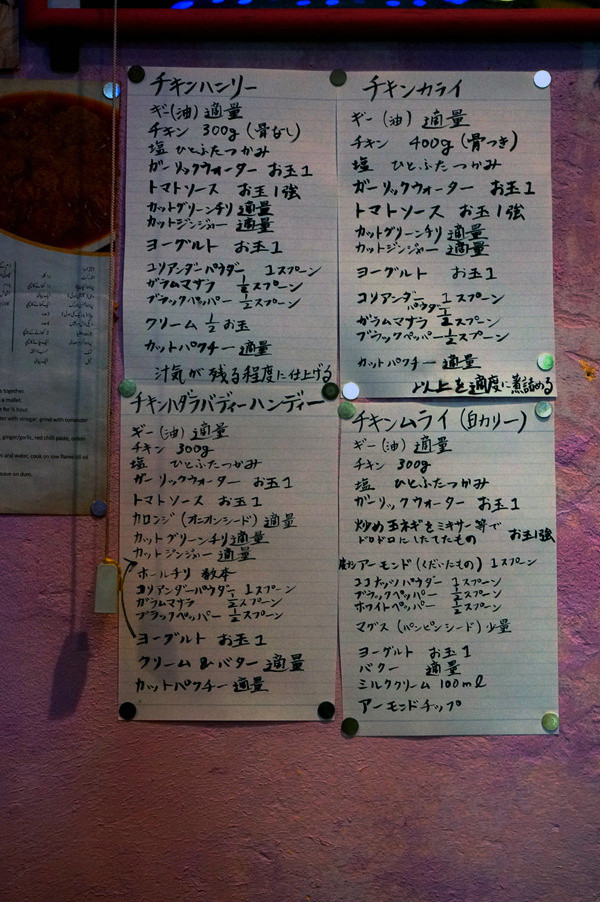 チキンハンリー
ギー(油) 適量
チキン 300g (骨なし)
塩 ひとふたつかみ
ガーリックウォーター お玉1
トマトソース お玉1強
カットグリーンチリ 適量
カットジンジャー 適量
ヨーグルト お玉1
コリアンダーパウダー 1スプーン
ガラムマサラ 1/2スプーン
ブラックペッパー 1/2スプーン
クリーム 1/2お玉
カットパクチー 適量
汁気が残る程度に仕上げる
チキンカライ
ギー (油) 適量
チキン 400g (骨つき)
塩 ひとふたつかみ
ガーリックウォーター お玉1
トマトソース お玉1強
カットグリーンチリ 適量
カットジンジャー 適量
ヨーグルト お玉1
コリアンダー 1スプーン
パウダー
ガラムマサラ 1/2スプーン
ブラックペッパー 1/2スプーン
カットパクチー 適量
以上を適度に煮詰める
チキンハダラバディーハンディー
ギー (油) 適量
チキン 300g
塩 ひとふたつかみ
ガーリックウォーター お玉1
トマトソース お玉1
カロンジ (オニオンシード) 適量
カットグリーンチリ 適量
カットジンジャー 適量
ホールチリ 数本
コリアンダーパウダー 1スプーン
ガラムマサラ 1/2スプーン
ブラックペッパー 1/2スプーン
ヨーグルト お玉1
クリーム&バター 適量
カットパクチー 適量
チキンムライ (白カリー)
ギー (油) 適量
チキン 300g
塩 ひとふたつかみ
ガーリックウォーター お玉1
炒め玉ネギをミキサー等で
ドロドロにしたもの お玉1強
アーモンド (くだいたもの) 1スプーン
ココナッツパウダー 1スプーン
ブラックペッパー 1/2スプーン
ホワイトペッパー 1/2スプーン
マグス (パンピンシード) 少量
ヨーグルト お玉1
バター 適量
ミルククリーム 100ml
アーモンドチップ
together.
a mallet.
for ½ hour.
with vinegar, grind with coriander
ginger/garlic, red chilli paste, onion
and water, cook on low flame till oil
leave on dum.